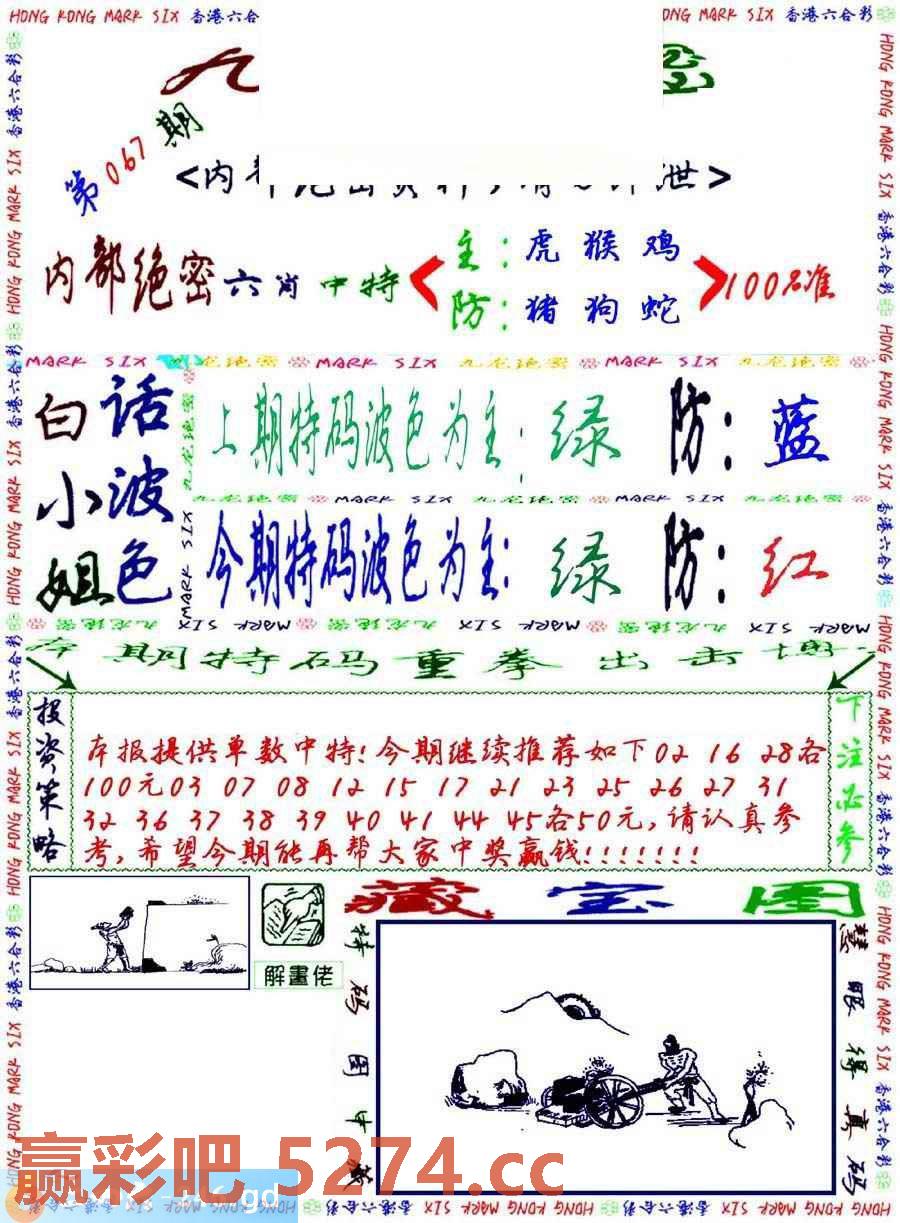 HONG KONG MARK SIX 香港六合彩
第067期
六肖中特
内部绝密
主:虎猴鸡
防:猪狗蛇
100%准
MARK SIX 九龙绝密 MARK SIX 九龙绝密 MARK SIX 九龙绝密
白话小波姐色
上期特码波色为主:绿 防:蓝
九龙绝密 MARK SIX 九龙绝密 MARK SIX 九龙绝密
今期特码波色为主:绿 防:红
MARK SIX 九龙绝密
期特码重拳出击
投资策略
本报提供单数中特!今期继续推荐如下02 16 28各
100元03 07 08 12 15 17 21 23 25 26 27 31
32 36 37 38 39 40 41 44 45各50元,请认真参
考,希望今期能再帮大家中奖赢钱!!!!!!!
下注必参
解畫佬
藏宝图
特码图中
慧眼得真码
赢彩吧 5274.cc